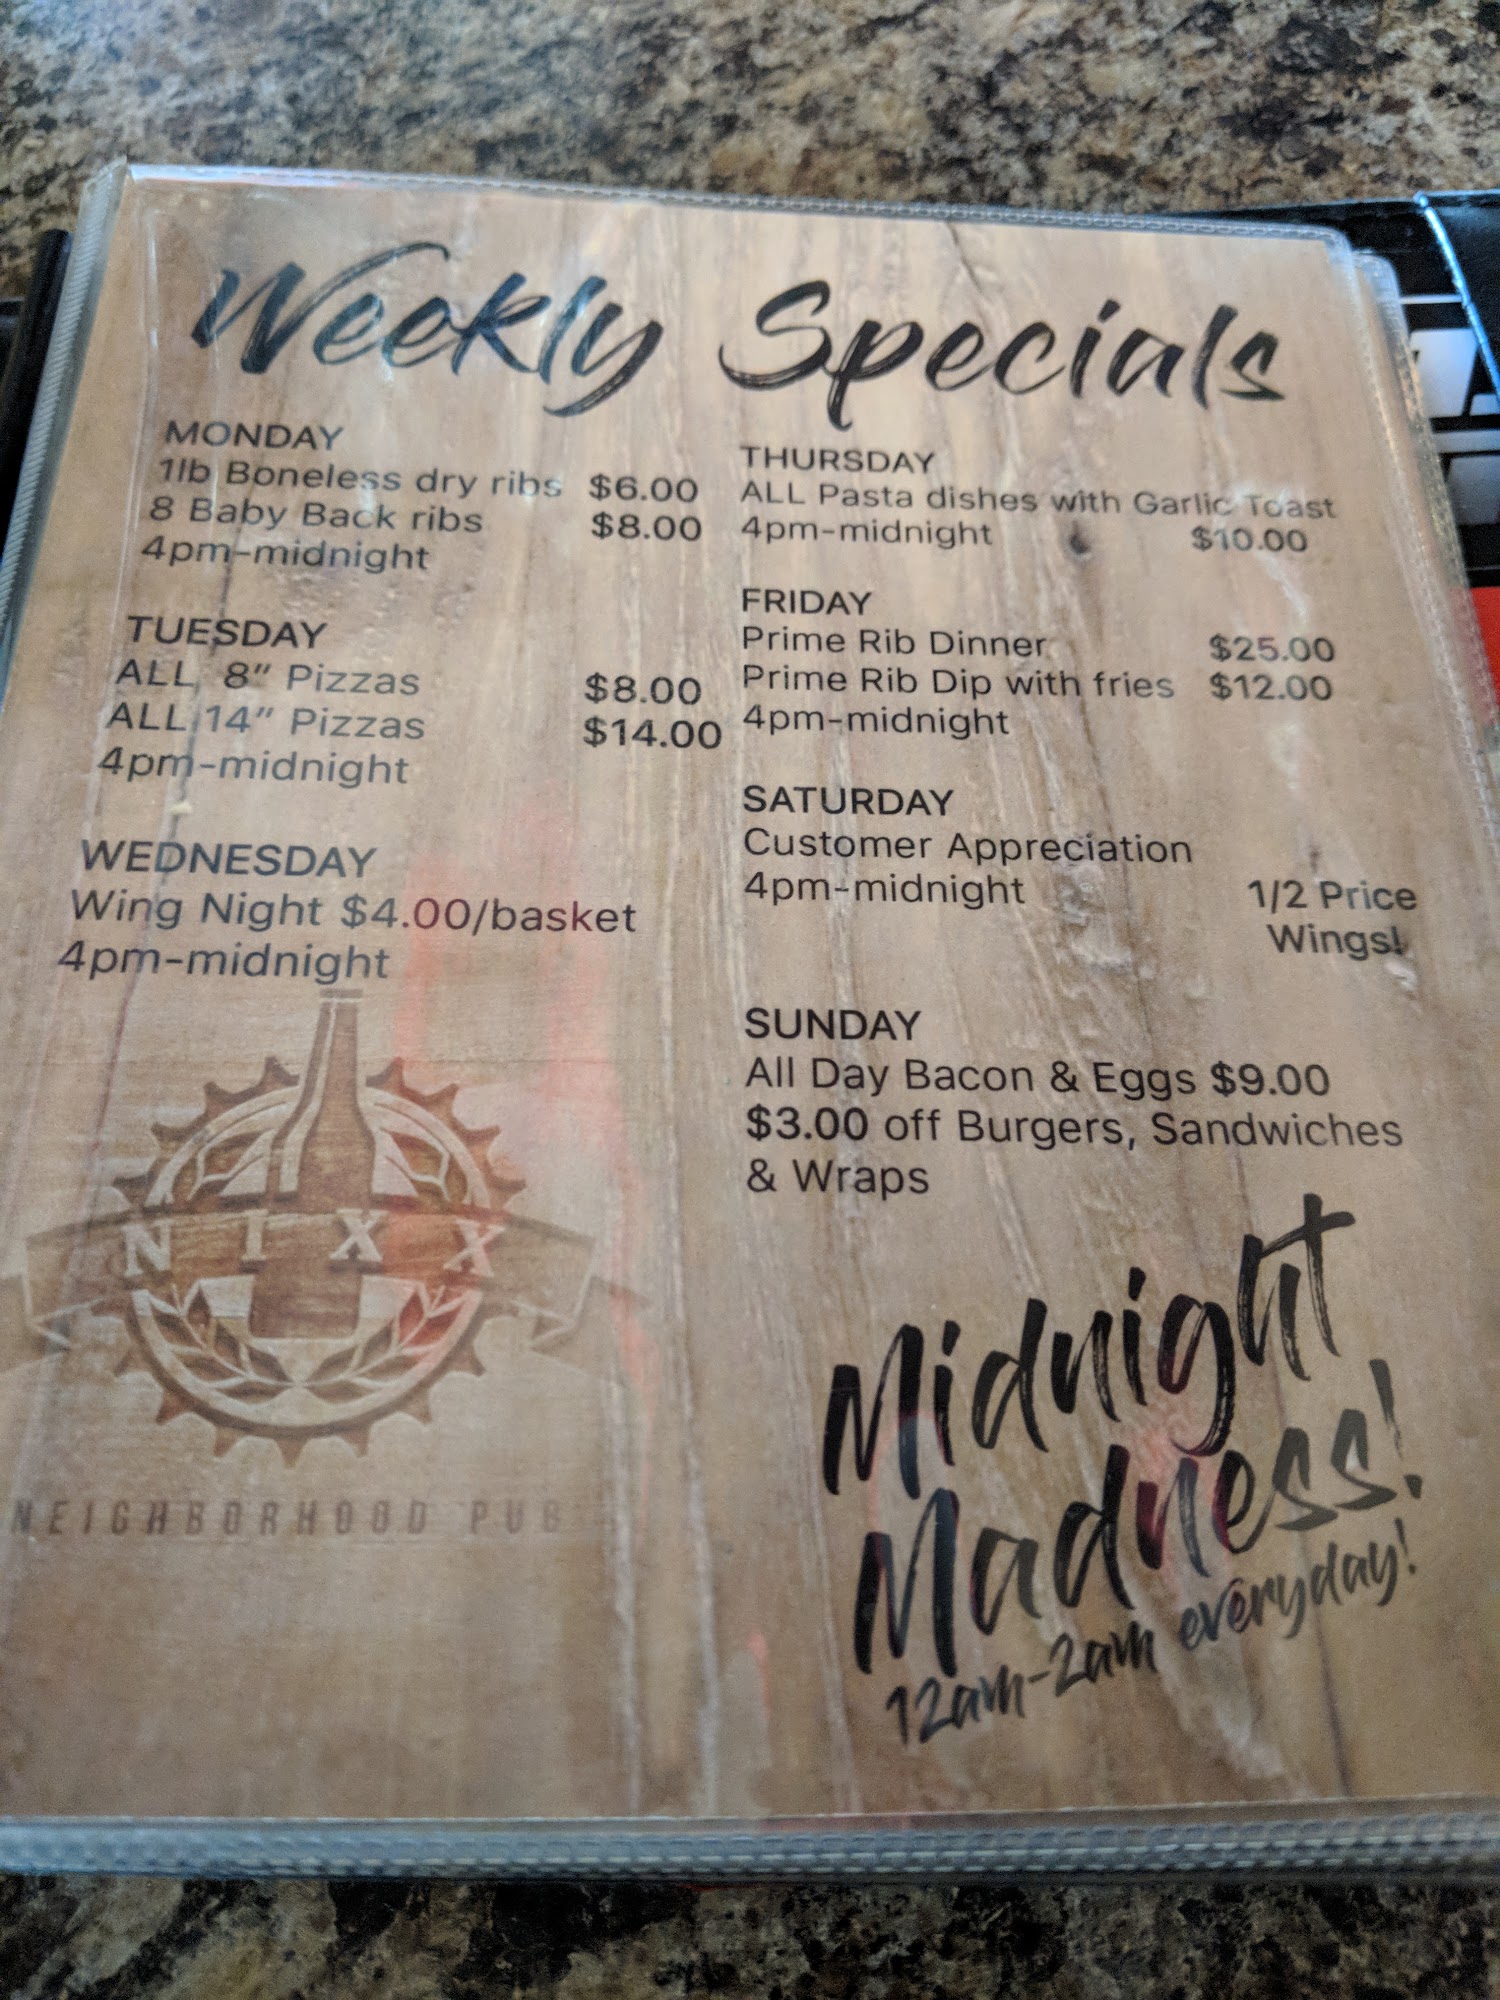 Weekly Specials
MONDAY
1lb Boneless dry ribs $6.00
8 Baby Back ribs $8.00
4pm-midnight
TUESDAY
ALL 8" Pizzas $8.00
ALL 14" Pizzas $14.00
4pm-midnight
WEDNESDAY
Wing Night $4.00/basket
4pm-midnight
NIXX
NEIGHBORHOOD PUB
THURSDAY
ALL Pasta dishes with Garlic Toast
4pm-midnight $10.00
FRIDAY
Prime Rib Dinner $25.00
Prime Rib Dip with fries $12.00
4pm-midnight
SATURDAY
Customer Appreciation
4pm-midnight 1/2 Price
Wings!
SUNDAY
All Day Bacon & Eggs $9.00
$3.00 off Burgers, Sandwiches
& Wraps
Midnight
Madness!
12am-2am everyday!